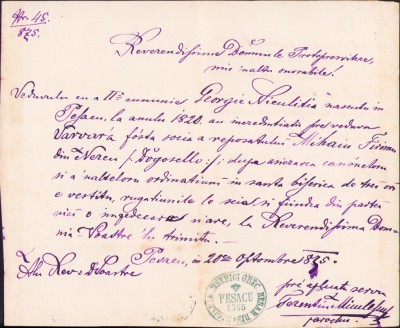 Nr. 45
875.
Reverendissime Domnule Protopresvitere,
mie înaltu onorabile!
Veduvulu cu a II-a cununie Georgie Niculitia nascutu in
Pesacu, la anulu 1820. au incredintiatu pre veduva
Varvara fosta socia a reposatului Mihaiu
din Nereu dupa asiezarea canóneloru
si a inalteloru ordinatiuni in santa biserica de trei ori
e vestitu, rugatiunile le scial si fiindca din parte
nici o impedecare n'are, la Reverendissima Dom-
nia Vóastre 'lu trimitu.
Pesacu, in 20 Octomvre 1875.
Alu Rev. D. Voastre
pré plecatu servu
Terentiu
parochu
PESACU